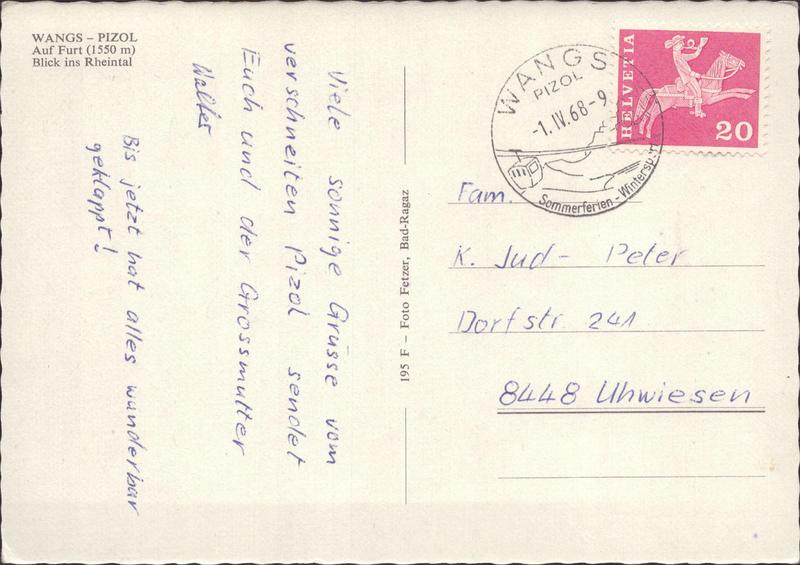 WANGS – PIZOL
Auf Furt (1550 m)
Blick ins Rheintal
Viele sonnige Grüsse vom
verschneiten Pizol sendet
Euch und der Grossmutter
Walter
Bis jetzt hat alles wunderbar
geklappt!
195 F – Foto Fetzer, Bad-Ragaz
WANGS
PIZOL
-1.IV.68-9
Sommerferien - Wintersport
HELVETIA
20
Fam.
K. Jud - Peter
Dorfstr. 241
8448 Uhwiesen